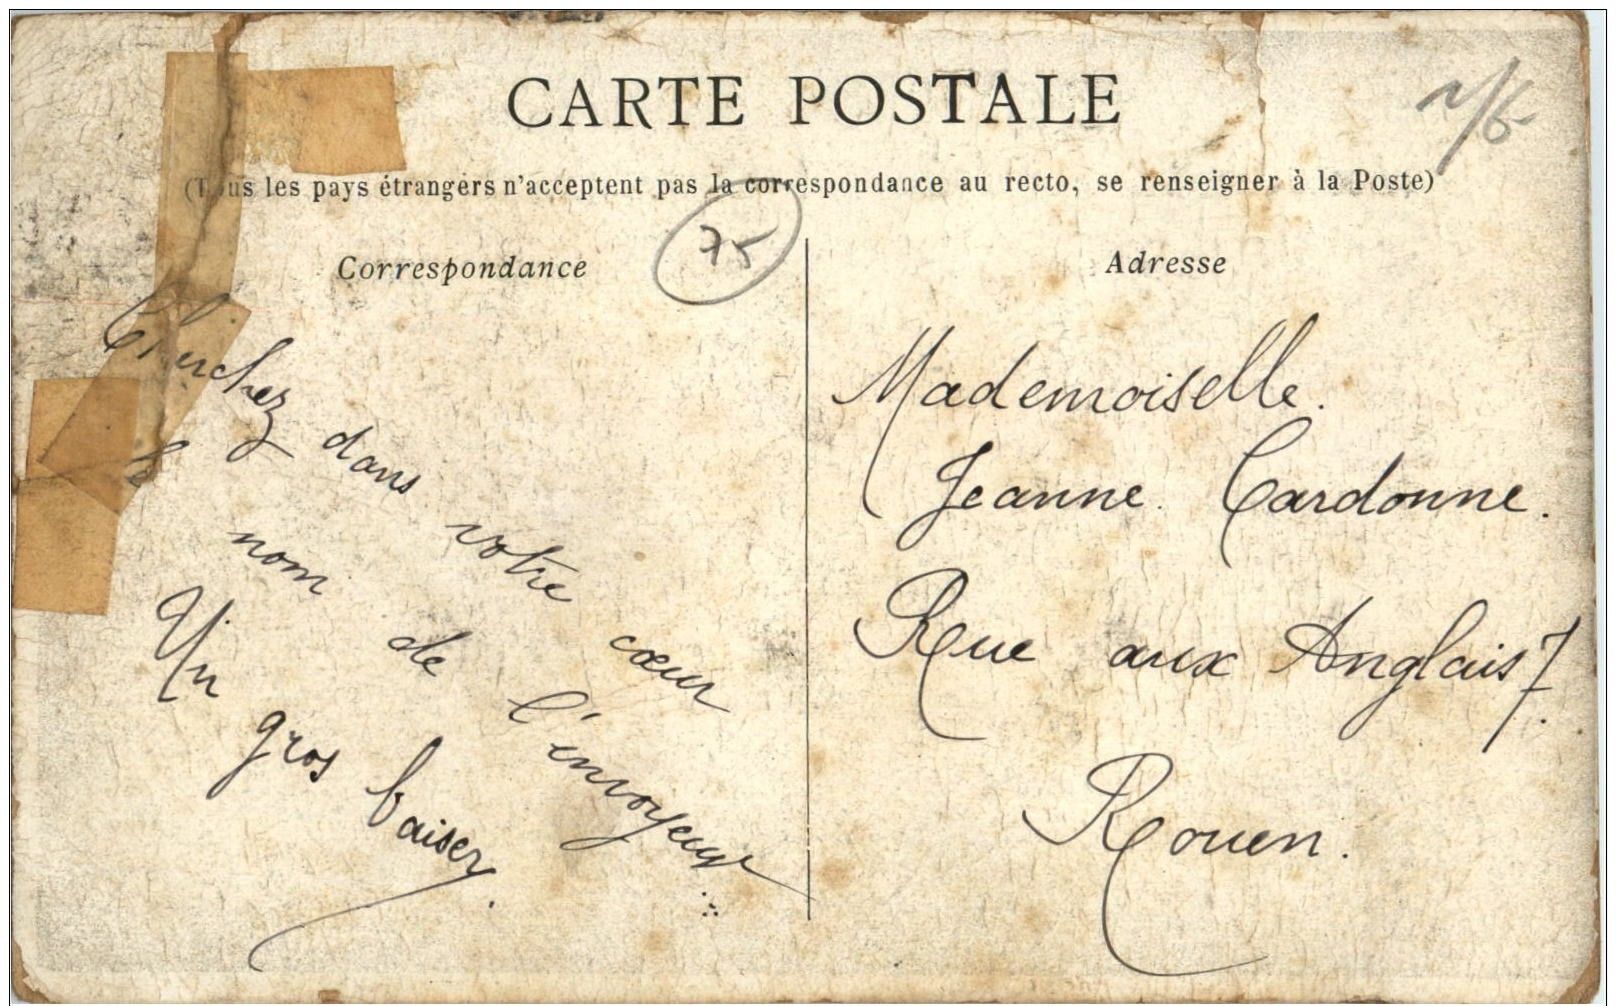 CARTE POSTALE
(Tous les pays étrangers n'acceptent pas la correspondance au recto, se renseigner à la Poste)
75
Correspondance
Cherchez dans votre cœur
le nom de l'envoyeur
Un gros baiser.
Adresse
Mademoiselle.
Jeanne. Cardonne.
Rue aux Anglais 7.
Rouen.